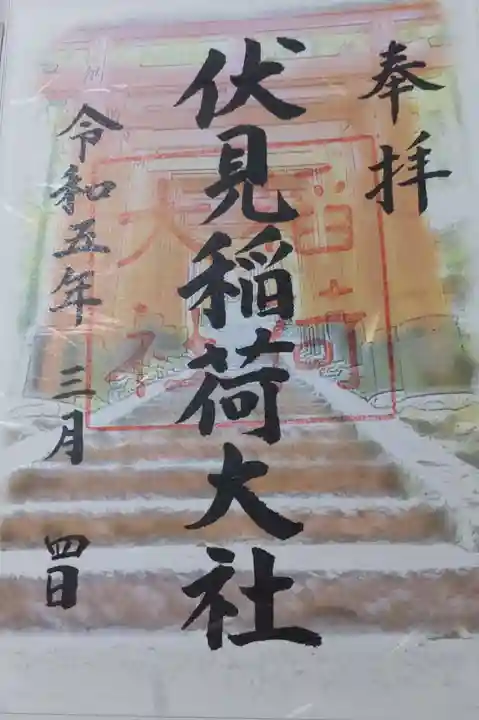 奉拝
伏見稲荷大社
令和五年 三月 四日